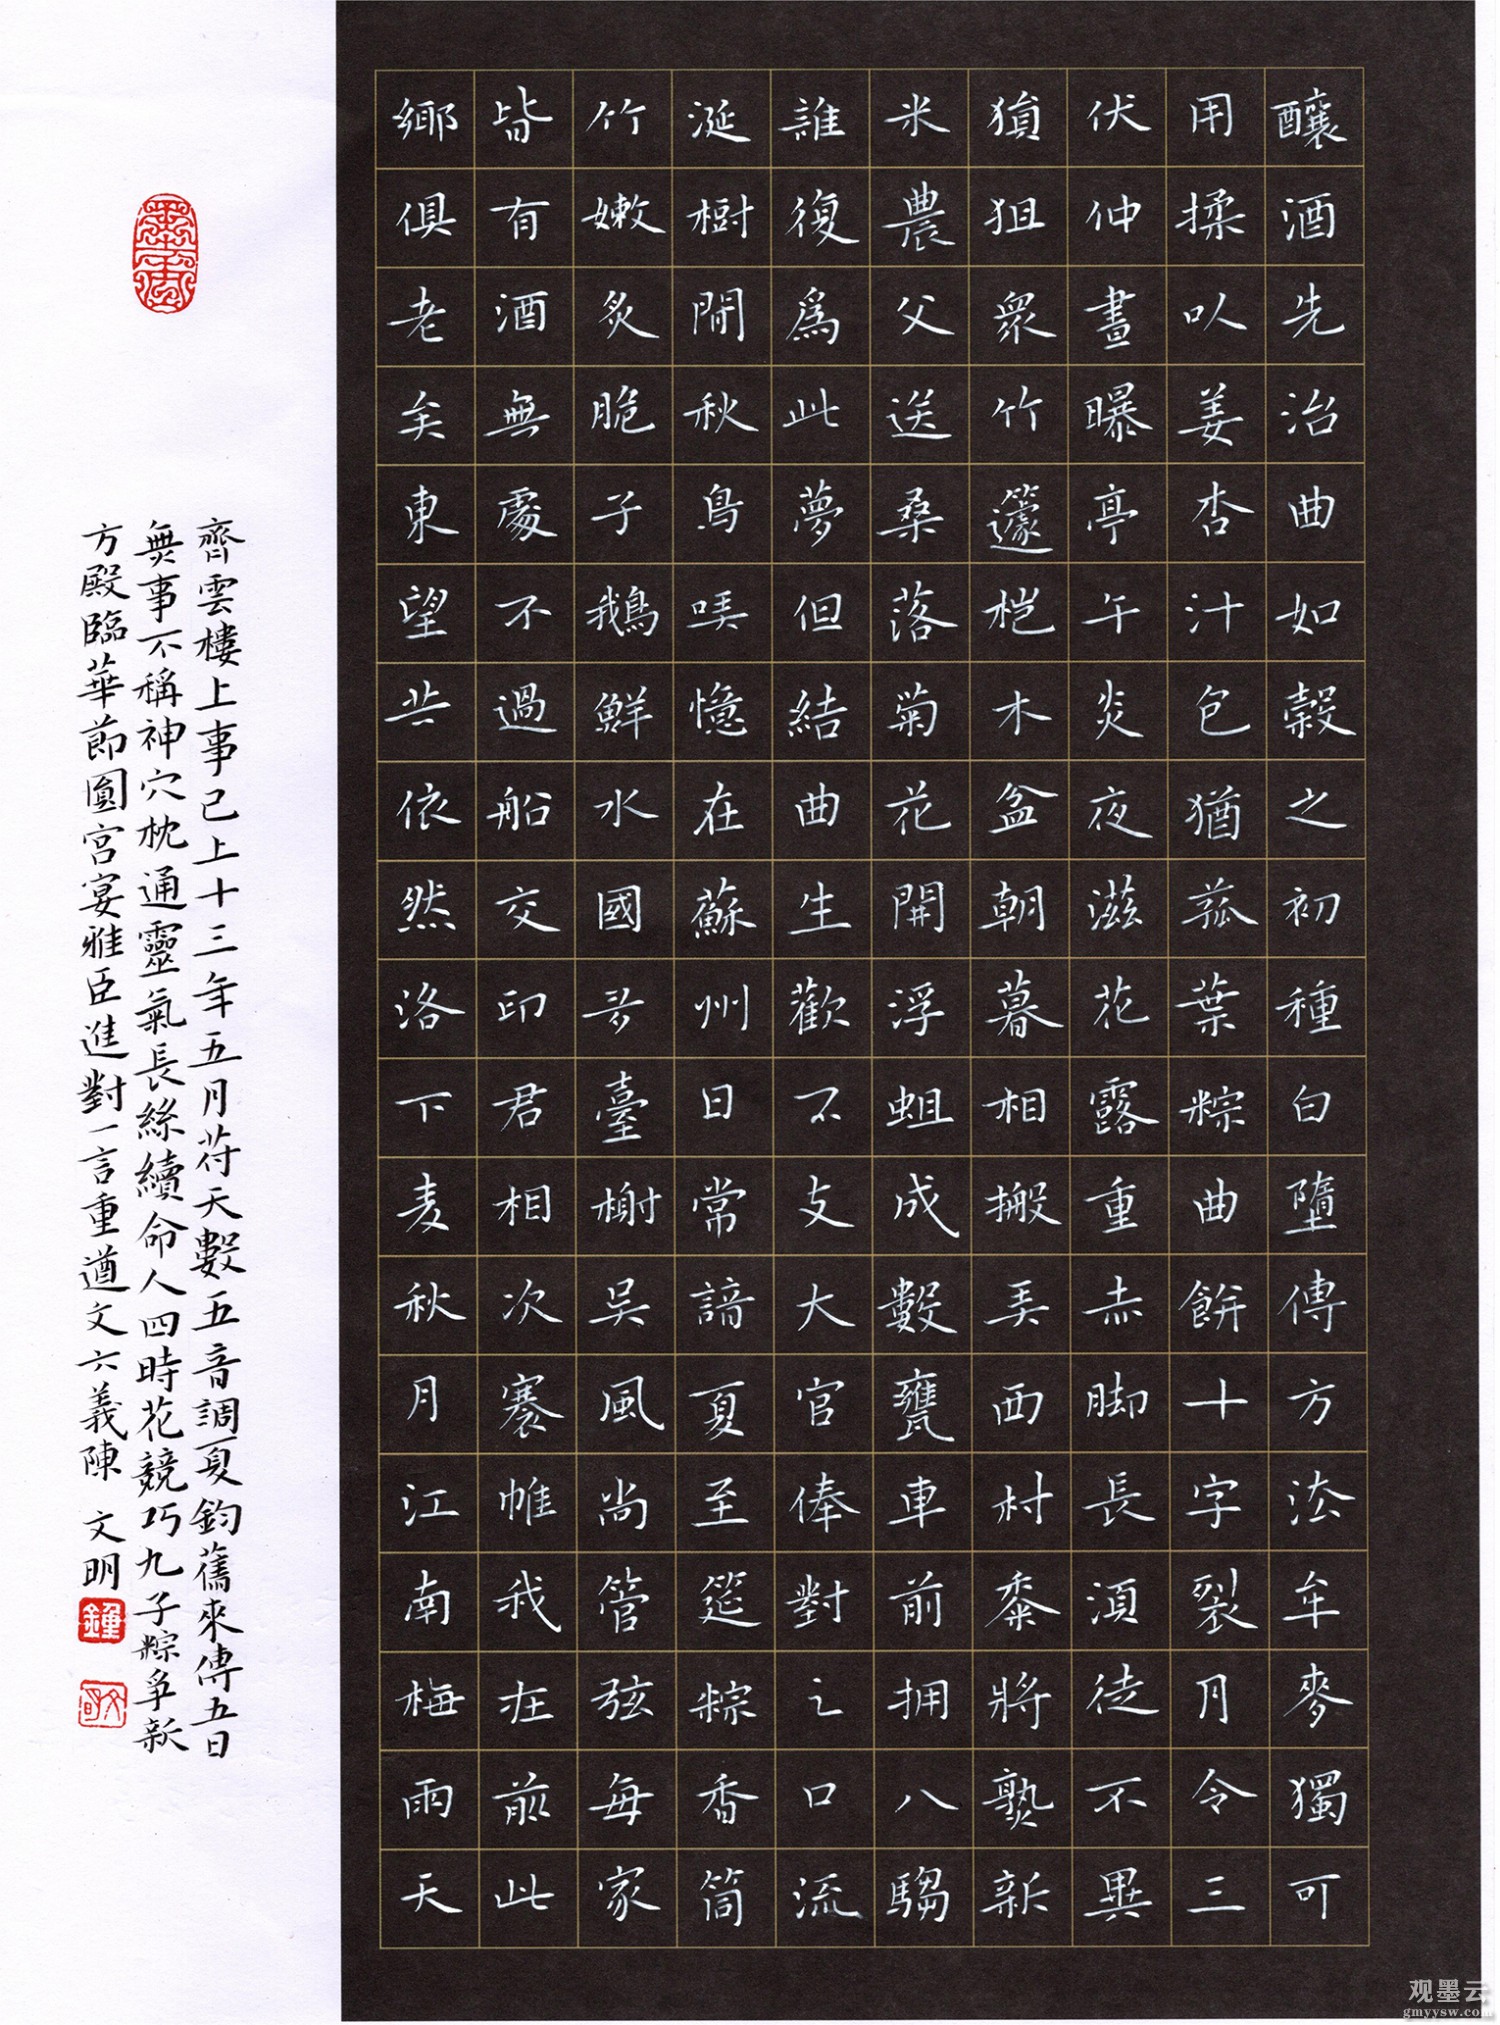 釀酒先治曲如穀之初種白墮傳方法牟麥獨可
用揉以姜杏汁包猶菰葉粽曲餅十字裂月令三
伏仲晝曝亭午炎夜滋花露重赤脚長湏徒不異
狙衆竹籧桤木盆朝暮相搬弄西村黍將熟新
米農父送桑落菊花開浮蛆成數甕車前拥八騶
誰復爲此夢但結曲生歡不支大官俸對之口流
涎樹間秋鳥憶在蘇州日常諳夏至筵粽香筒
竹嫩炙脆子鵝鮮水國多臺榭吳風尚管弦每家
皆有酒無處不過船交印君相次褰帷我在前此
鄉俱老矣東望共依然洛下麦秋月江南梅雨天
齊雲樓上事已上十三年五月符天數五音調夏鈞舊來傳五日
無事不稱神穴枕通靈氣長絲續命人四時花競巧九子粽爭新
方殿臨華節圓宮宴雅臣進對一言重遒文六義陳 文明
鍾
观墨云
gmyysw.com